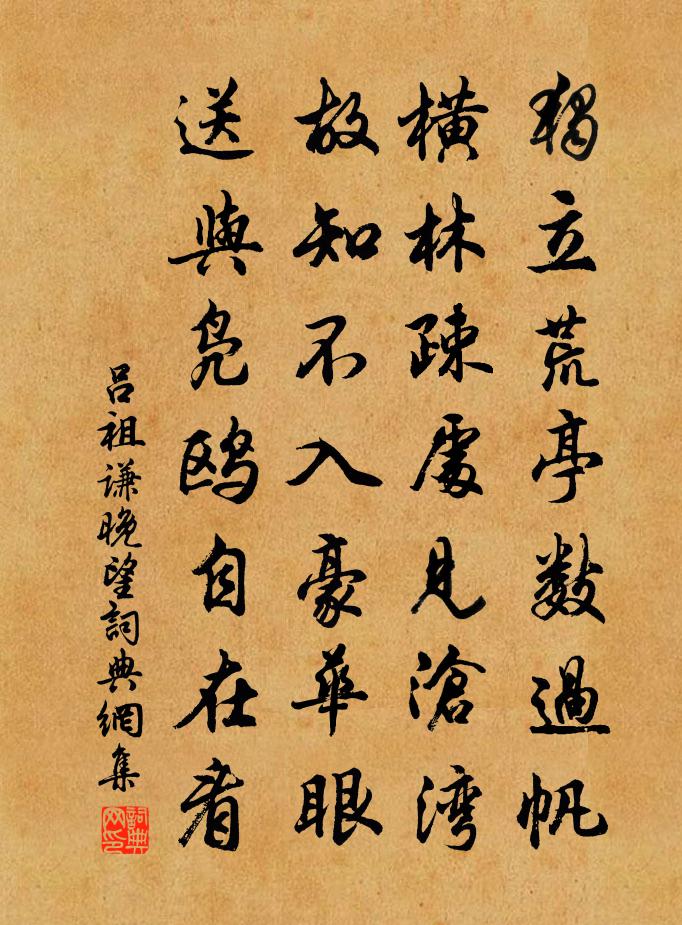 獨立荒亭數過帆
橫林疎處見滄灣
故知不入豪華眼
送與鳧鷗自在看
呂祖謙晚望詞典網集
詞典网印